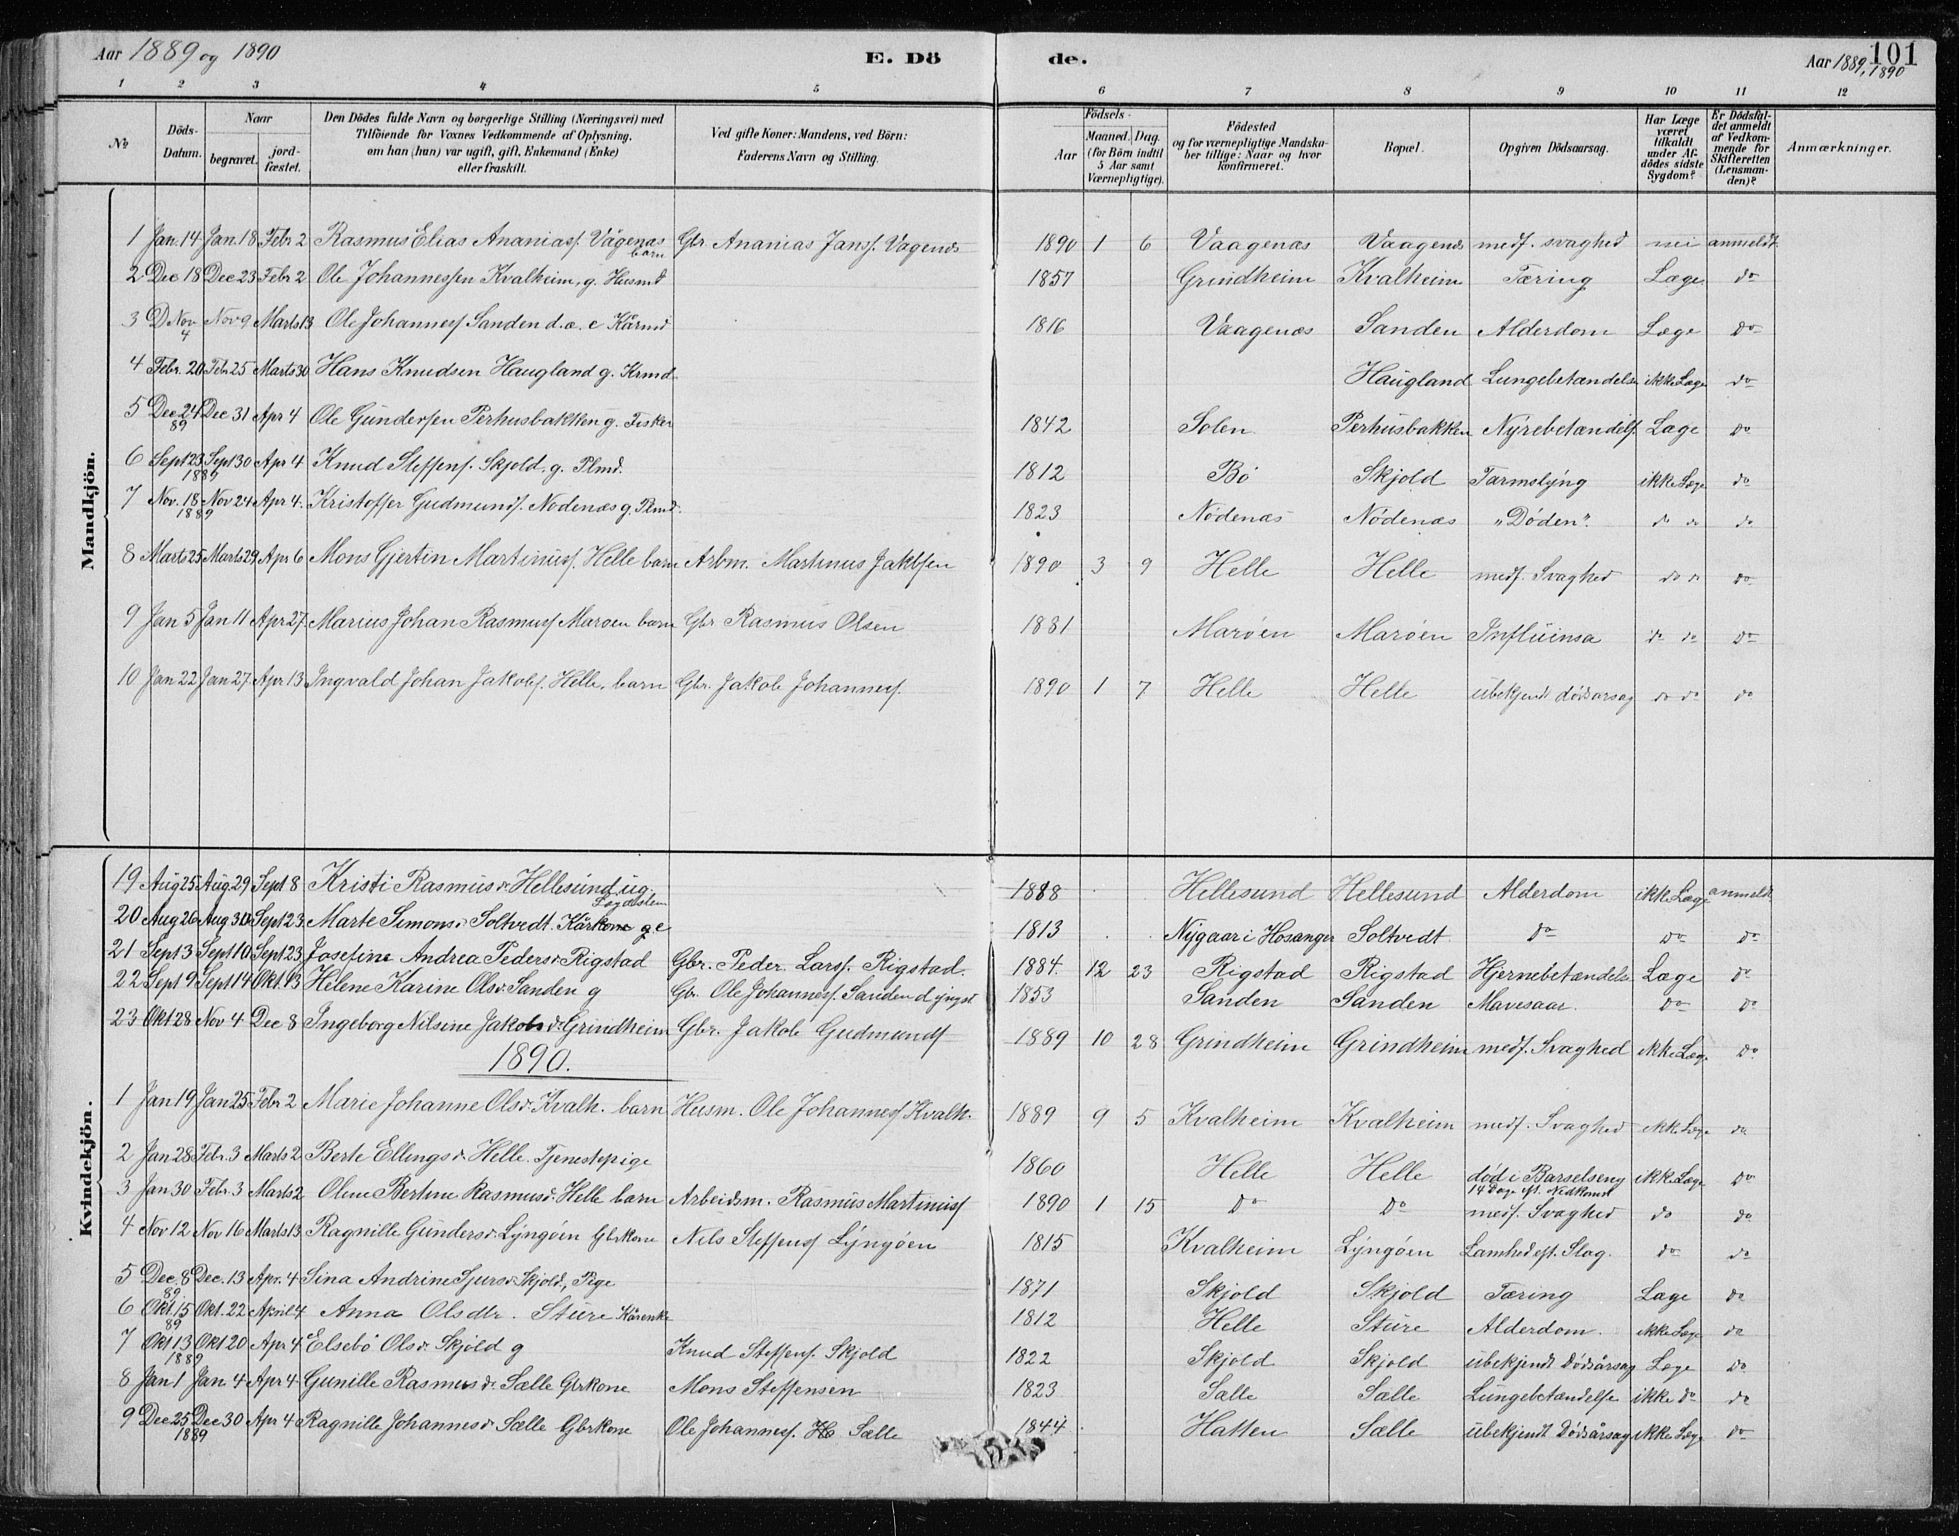 Aar 1889 og 1890
E. Dö
de.
Aar 1889, 1890
101
1 2 3 4 5 6 7 8 9 10 11 12
No
Döds-Datum.
Naar
begravet.
jord-fæstet.
Den Dödes fulde Navn og borgerlige Stilling (Næringsvei) med
Tilföiende for Voxnes Vedkommende af Oplysning.
om han (hun) var ugift, gift, Enkemand (Enke)
eller fraskilt.
Ved gifte Koner: Mandens, ved Börn:
Faderens Navn og Stilling.
Födsels-
Aar
Maaned. Dag.
(for Börn indtil
5 Aar samt
Værnepligtige).
Födested
og for værnepligtige Mandska-
ber tillige: Naar og hvor
konfirmeret.
Bopæl.
Opgiven Dödsaarsag.
Har Læge
været
tilkaldt
under Af-
dödes sidste
Sygdom?
Er Dödsfal-
det anmeldt
af Vedkom-
mende for
Skifteretten
(Lensman-
den)?
Anmærkninger.
Mandkjön.
1 Jan. 14 Jan. 18 Febr 2 Rasmus Elias Ananiasf. Vågenæs barn Gbr Ananias Jansf. Vagenæs 1890 1 6 Vaagenæs Vaagenæs medf. svaghed nei anmeldt
2 Dec 18 Dec 23 Febr 2 Ole Johannessen Kvalheim, g. Husmd 1857 Grindheim Kvalheim Tæring Læge do
3 D Nov 4 Nov 9 Marts 13 Ole Johannesf Sanden d.æ. e Kårmd 1816 Vaagenæs Sanden Alderdom Læge do
4 Febr. 20 Febr 25 Marts 30 Hans Knudsen Haugland g. Krmd Haugland Lungebetændelse ikke Læge do
5 Dec 24 89 Dec 31 Apr 4 Ole Gundersen Perhusbakken g. Fisker 1842 Solen Perhusbakken Nyrebetændelse Læge do
6 Sept 23 1889 Sept 30 Apr 4 Knud Steffensf. Skjold, g. Plmd. 1812 Bö Skjold Tarmslyng ikke Læge do
7 Nov. 18 1889 Nov 24 Apr 4. Kristoffer Gudmundsf. Nodenæs g. Plmd. 1823 Nödenæs Nödenæs "Döden". do do do
8 Marts 25 Marts 29 Apr 6 Mons Gjertin Martinusf. Helle barn Arbm. Martinus Jakobsen 1890 3 9 Helle Helle medf. Svaghed do do do
9 Jan 5 Jan 11 Apr 27. Marius Johan Rasmusf Maröen barn Gbr Rasmus Olsen 1881 Maröen Maröen Influinsa do do do
10 Jan 22 Jan 27. Apr 13 Ingvald Johan Jakobsf. Helle, barn Gbr. Jakob Johannesf. 1890 1 7 Helle Helle ubekjendt dödsarsag do do do
Kvindekjön.
19 Aug 25 Aug. 29 Sept 8 Kristi Rasmusd. Hellesund ug. Lægdslem 1818 Hellesund Hellesund Alderdom ikke Læge anmeldt
20 Aug 26 Aug 30 Sept 23 Marte Simonsd. Soltvedt. Kårkone g e 1813 Nygaar i Hosanger Soltvedt do do do
21 Sept 3 Sept 10 Sept 23 Josefine Andrea Pedersd. Rigstad Gbr. Peder Larsf. Rigstad. 1884. 12 23 Rigstad Rigstad Hjernebetændelse Læge do
22 Sept 9 Sept 14 Okt. 13 Helene Karine Olsd. Sanden g Gbr. Ole Johannesf. Sanden d yngst 1853 Sanden Sanden Mavesaar. do do
23 Okt 28 Nov 4 Dec 8 Ingeborg Nilsine Jakobsd. Grindheim Gbr. Jakob Gudmundsf 1889 10 28 Grindheim Grindheim medf. Svaghed ikke Læge do
1890.
1 Jan 19 Jan 25 Febr 2 Marie Johanne Olsd. Kvalh. barn Husm. Ole Johannesf Kvalh. 1889 9 5 Kvalheim Kvalheim medf. Svaghed ikke Læge do
2 Jan 28 Febr. 3 Marts 2 Berte Ellingsd. Helle. Tjenestepige 1860 Helle Helle död i Barselseng 14 Dage eft. Nedkomst ikke Læge do
3 Jan 30 Febr. 3 Marts 2 Oline Bertine Rasmusd. Helle barn Arbeidsm. Rasmus Martinusf 1890 1 15 do do medf. Svaghed do do
4 Nov 12 Nov 16 Marts 13 Ragnille Gundersd. Lyngöen Gbrkone Nils Steffensf Lyngöen 1815 Kvalheim Lyngöen Lamhed eft. Slag. do do
5 Dec. 8 89 Dec. 13 Apr. 4 Sina Andrine Sjursd. Skjold, Pige 1871 Skjold Skjold Tæring Læge do
6 Okt. 15 89 Okt. 22 April 4 Anna Olsdtr. Sture Kårenke 1812 Helle Sture Alderdom. ikke Læge do
7 Okt 13 1889 Okt 20 Apr 4 Elsebö Olsd. Skjold g Knud Steffensf. Skjold 1822 Skjold Skjold ubekjendt Dödsårsag Læge do
8 Jan 1 Jan. 4 Apr 4 Gunille Rasmusd. Sælle Gbrkone Mons Steffensen 1823 Sælle Sælle Lungebetændelse ikke do do
9 Dec 25 1889 Dec 30 Apr 4 Ragnille Johannesd. Sælle Gbrkone Ole Johannesf. Sælle 1844 Hatten Sælle ubekjendt Dödsårsag ikke Læge do